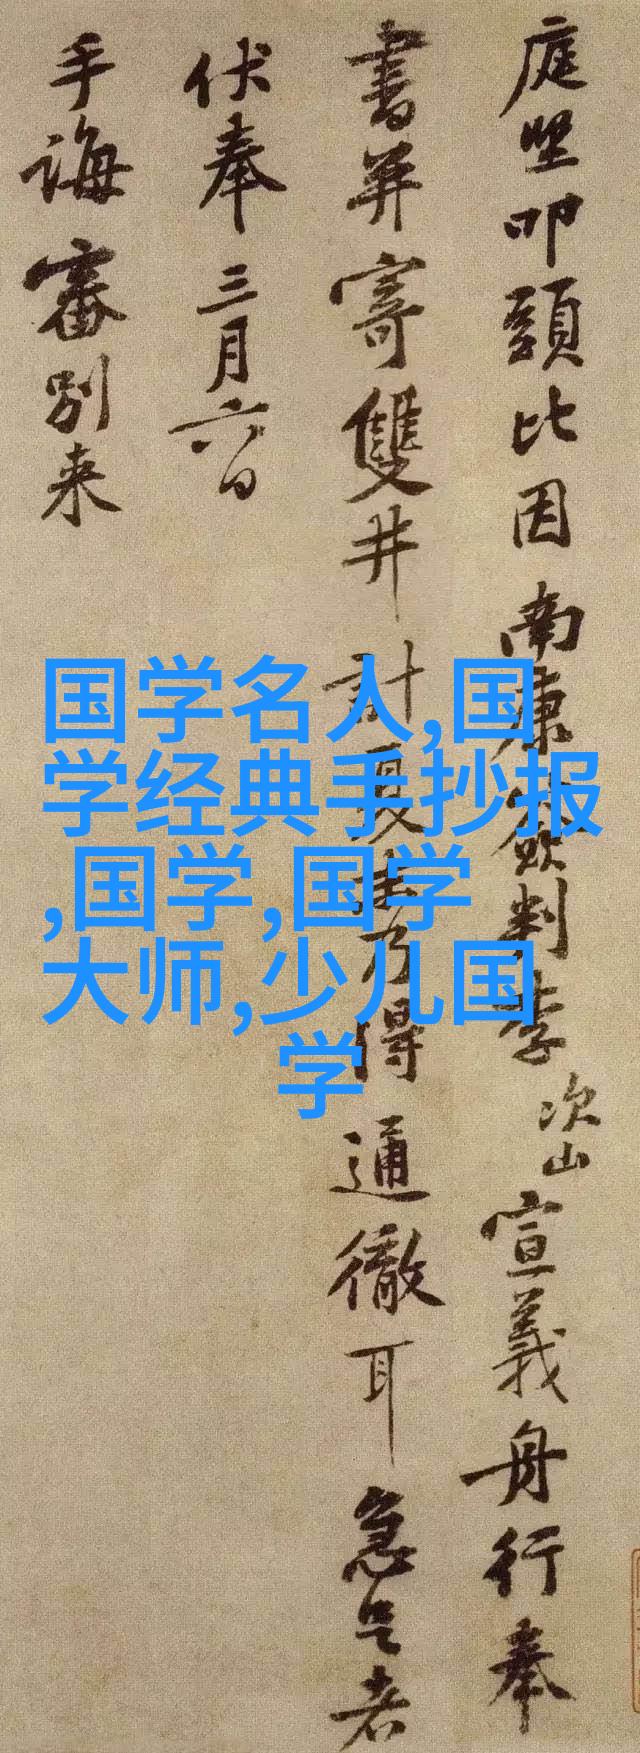 庭堅叩頭比因南康簽判李次山宣義舟行奉
書並寄雙井計夏末乃得通徹耳急足者
伏奉三月六日
手誨審別来
国学名人,国
学经典手抄报
,国学,国学
大师,少儿国
学